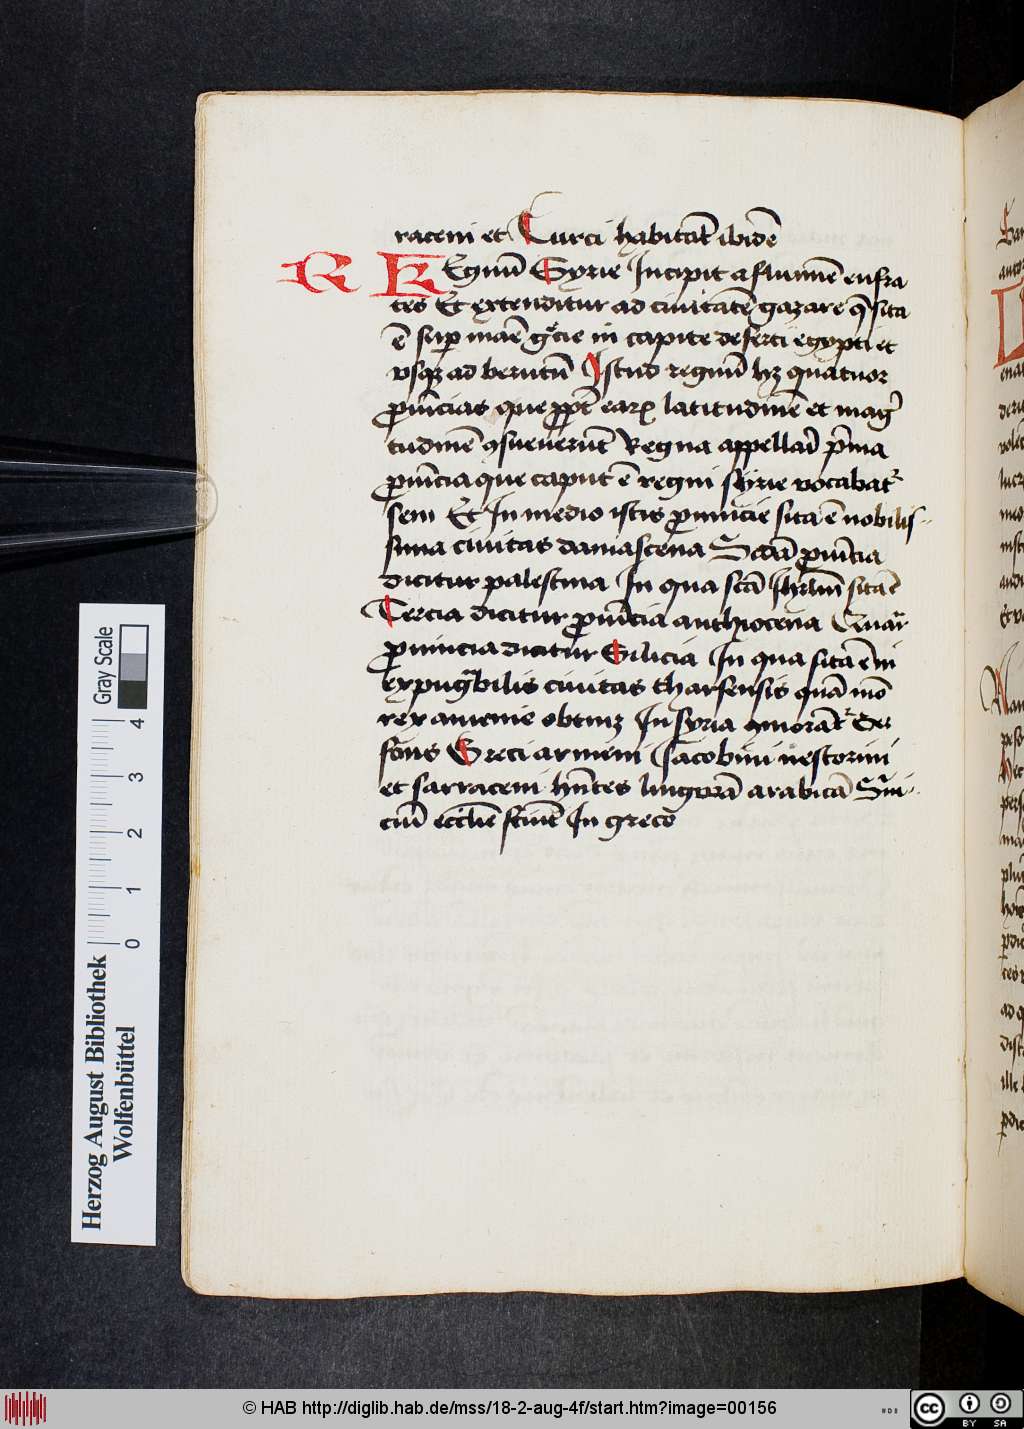 raceni et Turci habitāt ibidē
R REgnū Syrie Incipit a flumīe eufra
tes Et extenditur ad ciuitatē gazare q̄ sita
ē sup mare grecie in capite deserti egypti et
vsqz ad berutū Istud regnū hz quatuor
prouīcias que ppt earꝝ latitudinē et mag
tudinē ꝯsueuerūt Regna appellari prima
prouīcia que caput ē regni syrie vocabat
sem Et In medio istis prouincie sita ē nobilis
sima ciuitas damascena Scdā prouīcia
dicitur palestina In qua scā Ihrlm̄ sita ē
Tercia dicitur prouīcia anthiocena Quar
prouincia dicitur Silicia In qua sita ē in
expugbilis ciuitas tharsensis quā mō
rex armenie obtinz In syria ꝯmorāt
Greci armeni Jacobini nestorini
et sarraceni hn̄tes lingwā arabicā
cm̄ eccl̄ie In greco
Gray Scale
0 1 2 3 4
Herzog August Bibliothek
Wolfenbüttel
© HAB http://diglib.hab.de/mss/18-2-aug-4f/start.htm?image=00156
CC BY SA